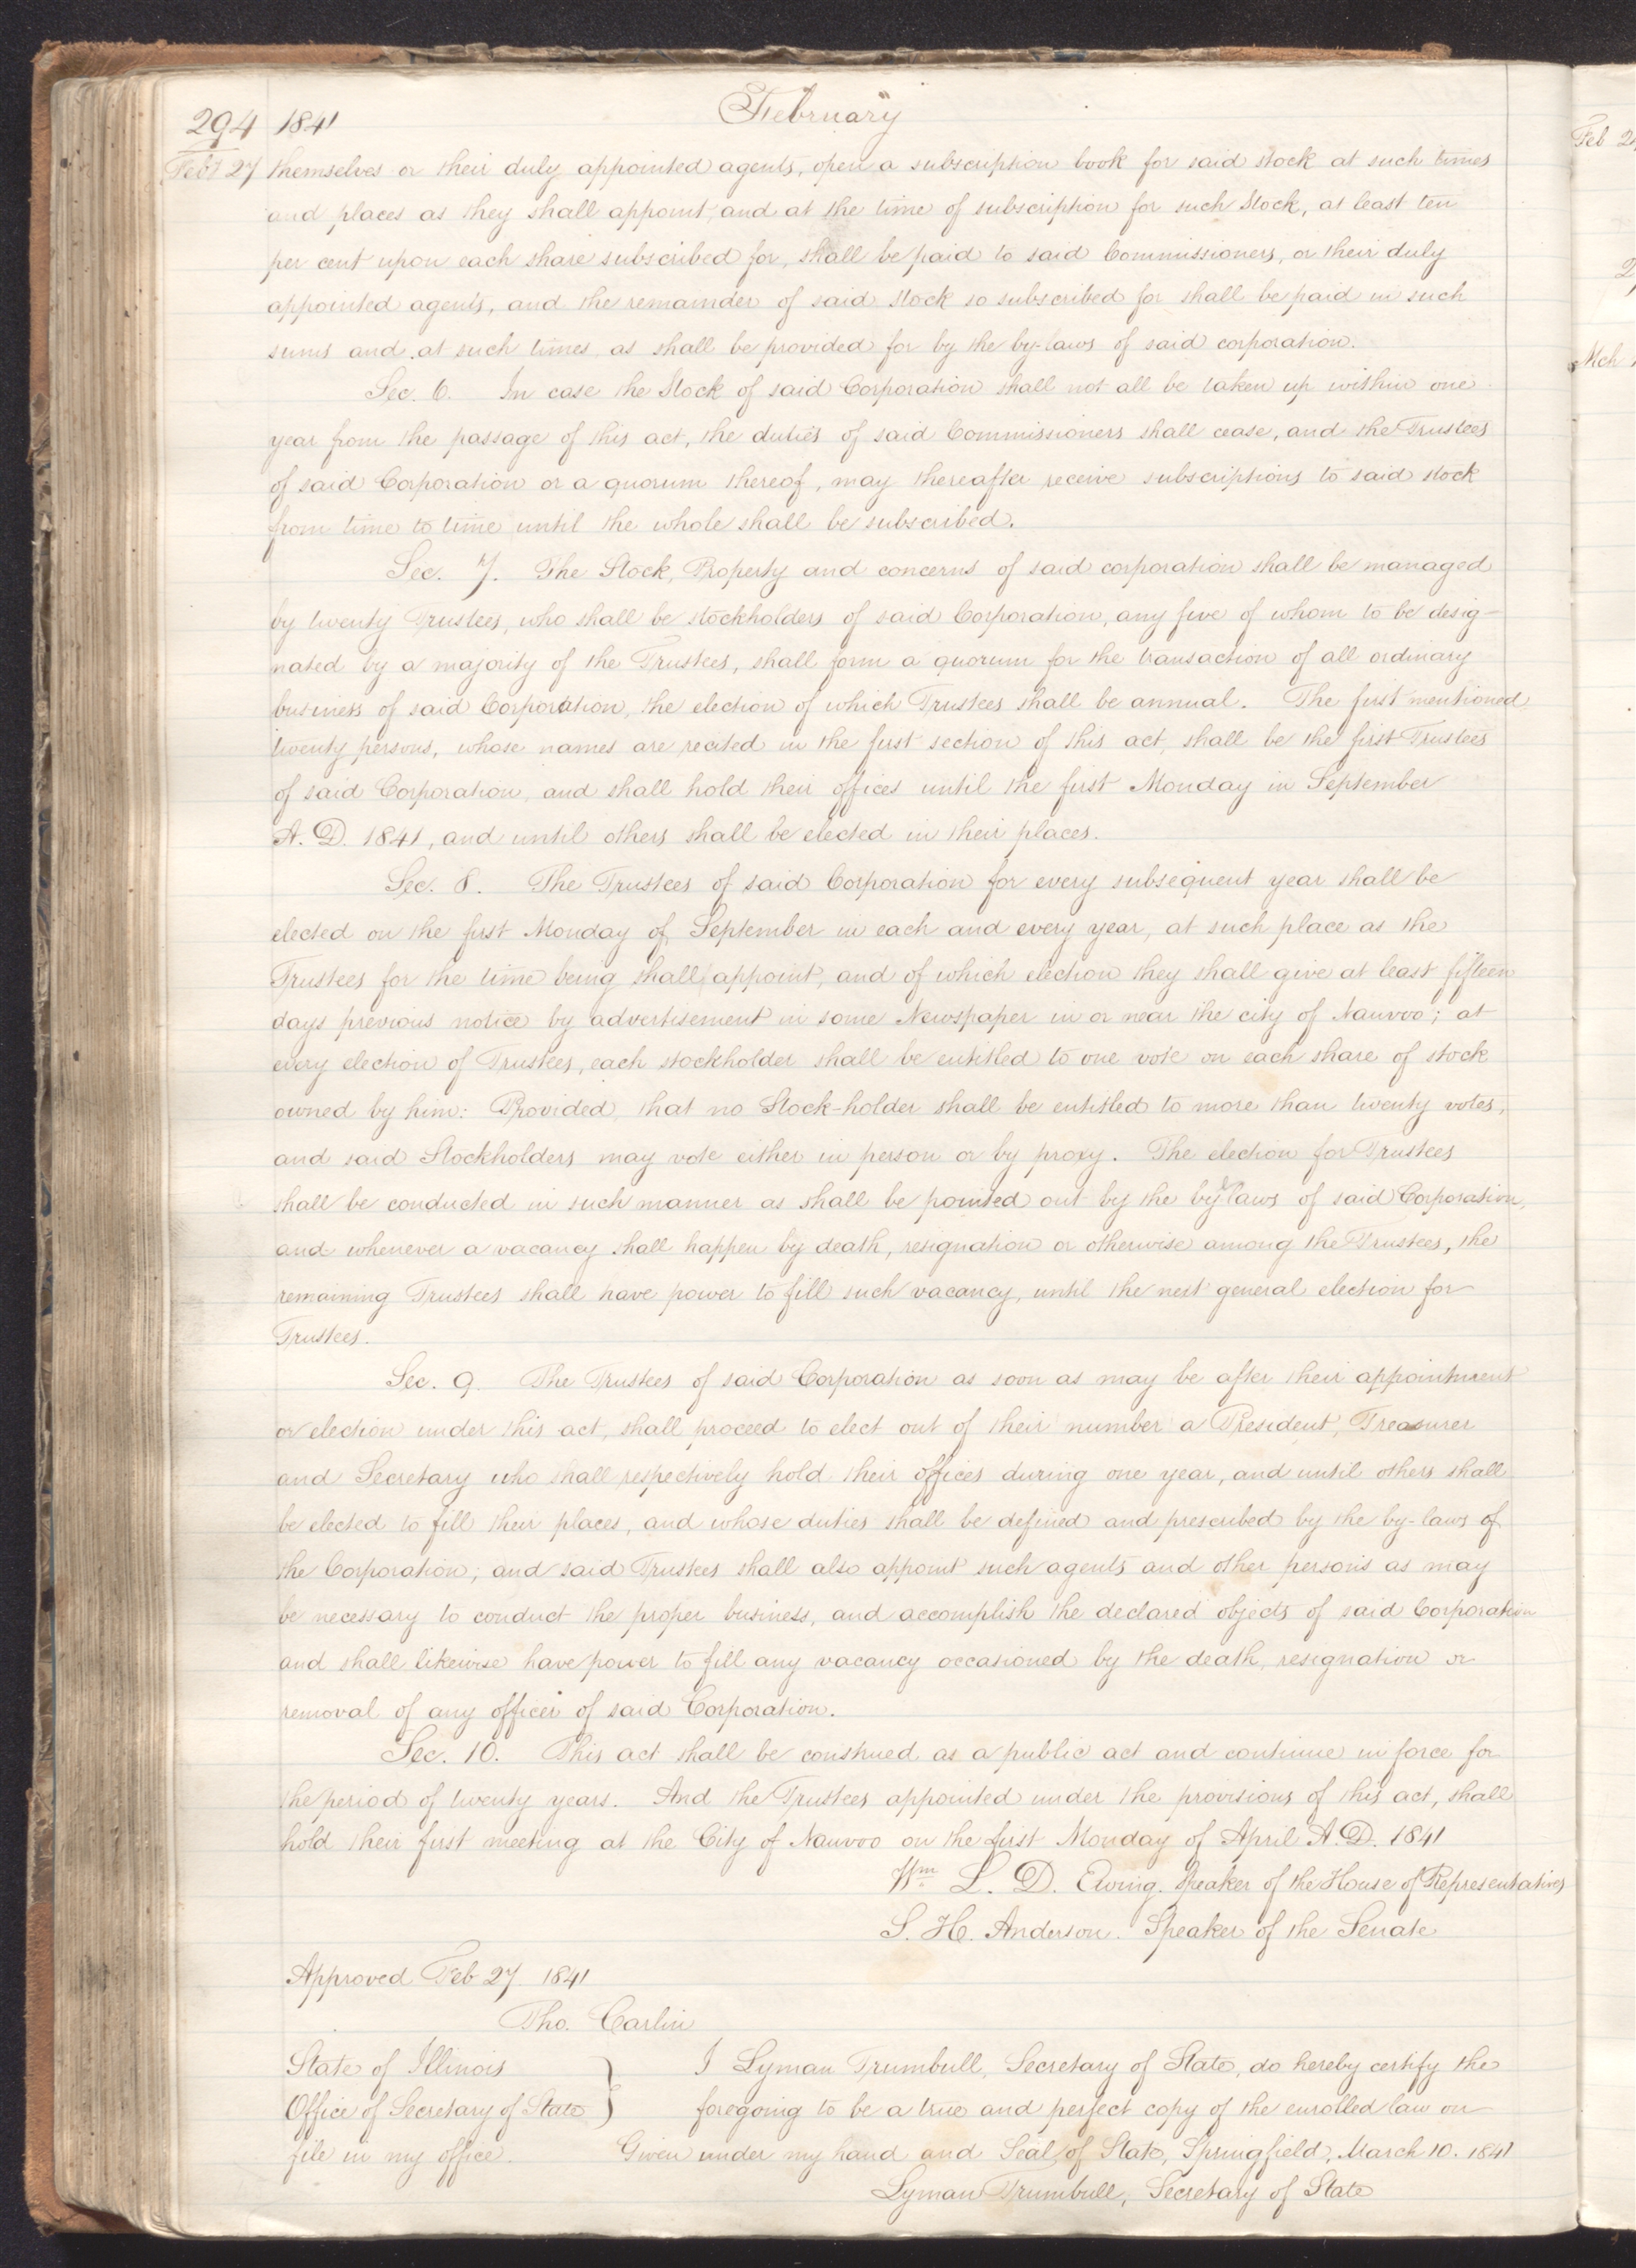 294 1841 February
Feby 27 themselves or their duly appointed agents, open a subscription book for said stock at such times
and places as they shall appoint, and at the time of subscription for such Stock, at least ten
per cent upon each share subscribed for, shall be paid to said Commissioners, or their duly
appointed agents, and the remainder of said stock so subscribed for shall be paid in such
sums and at such times, as shall be provided for by the by-laws of said corporation.
Sec. 6. In case the Stock of said Corporation shall not all be taken up within one
year from the passage of this act, the duties of said Commissioners shall cease, and the Trustees
of said Corporation or a quorum thereof, may thereafter receive subscriptions to said stock
from time to time until the whole shall be subscribed.
Sec. 7. The Stock, Property and concerns of said corporation shall be managed
by twenty Trustees, who shall be stockholders of said Corporation, any five of whom to be desig-
nated by a majority of the Trustees, shall form a quorum for the transaction of all ordinary
business of said Corporation, the election of which Trustees shall be annual. The first mentioned
twenty persons, whose names are recited in the first section of this act, shall be the first Trustees
of said Corporation, and shall hold their offices until the first Monday in September
A. D. 1841, and until others shall be elected in their places.
Sec. 8. The Trustees of said Corporation for every subsequent year shall be
elected on the first Monday of September in each and every year, at such place as the
Trustees for the time being shall appoint, and of which election they shall give at least fifteen
days previous notice by advertisement in some Newspaper in or near the city of Nauvoo; at
every election of Trustees, each stockholder shall be entitled to one vote on each share of stock
owned by him: Provided, that no Stock-holder shall be entitled to more than twenty votes,
and said Stockholders may vote either in person or by proxy. The election for Trustees
shall be conducted in such manner as shall be pointed out by the by laws of said Corporation,
and whenever a vacancy shall happen by death, resignation or otherwise among the Trustees, the
remaining Trustees shall have power to fill such vacancy, until the next general election for
Trustees.
Sec. 9. The Trustees of said Corporation as soon as may be after their appointment
or election under this act, shall proceed to elect out of their number a President, Treasurer
and Secretary who shall respectively hold their offices during one year, and until others shall
be elected to fill their places, and whose duties shall be defined and prescribed by the by-laws of
the Corporation; and said Trustees shall also appoint such agents and other persons as may
be necessary to conduct the proper business, and accomplish the declared objects of said Corporation
and shall likewise have power to fill any vacancy occasioned by the death, resignation or
removal of any officer of said Corporation.
Sec. 10. This act shall be construed as a public act and continue in force for
the period of twenty years. And the Trustees appointed under the provisions of this act, shall
hold their first meeting at the City of Nauvoo on the first Monday of April A.D. 1841
Wm L. D. Ewing. Speaker of the House of Representatives
S. H. Anderson. Speaker of the Senate
Approved Feb 27 1841
Tho. Carlin
State of Illinois } I Lyman Trumbull, Secretary of State, do hereby certify the
Office of Secretary of State foregoing to be a true and perfect copy of the enrolled law on
file in my office. Given under my hand and Seal of State, Springfield, March 10. 1841
Lyman Trumbull, Secretary of State
Feb
Mch